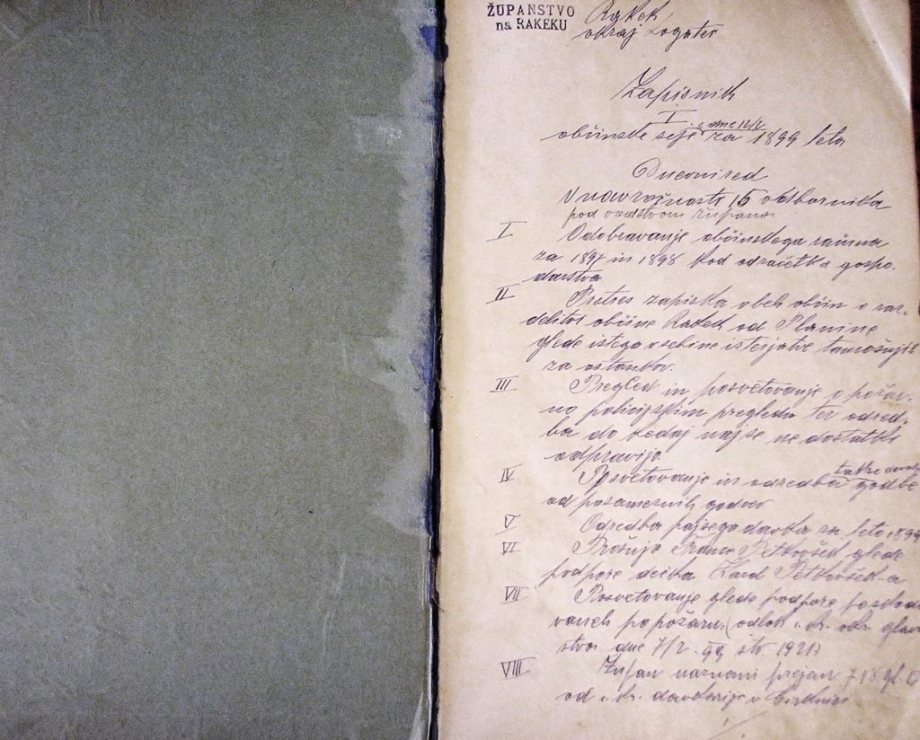 ŽUPANSTVO
na RAKEKU
Rakek
okraj Logatec
Zapisnik
I.
občinske seje dne 12/2
za 1899 leta
Dnevni red
V navzočnosti 15 odbornika
pod vodstvom župana
I Odobravanje občinskega računa
za 1897 in 1898 kod odsečka gospo-
darstva
II Pretres zapiska vseh občin o raz-
delitvi občine Rakek od Planine
glede istega vsebine
za ostankov.
III Pregled in posvetovanje o požar-
no policijskim pregledu ter odred-
ba do kedaj naj se ne dostatki
odpravijo.
IV Posvetovanje in odredba takse godbe
od posameznih godcev
V Odredba pasjega davka za leto 1899
VI Prošnja Petkovšek glede
podpore Petkovšek-a
VII Posvetovanje glede podpore
po požaru (odlok c. kr. okr. glavar
stva dne 7/2. 99 štv 1921)
VIII Župan naznani prejem 718 gl
od c. kr. davkarije v